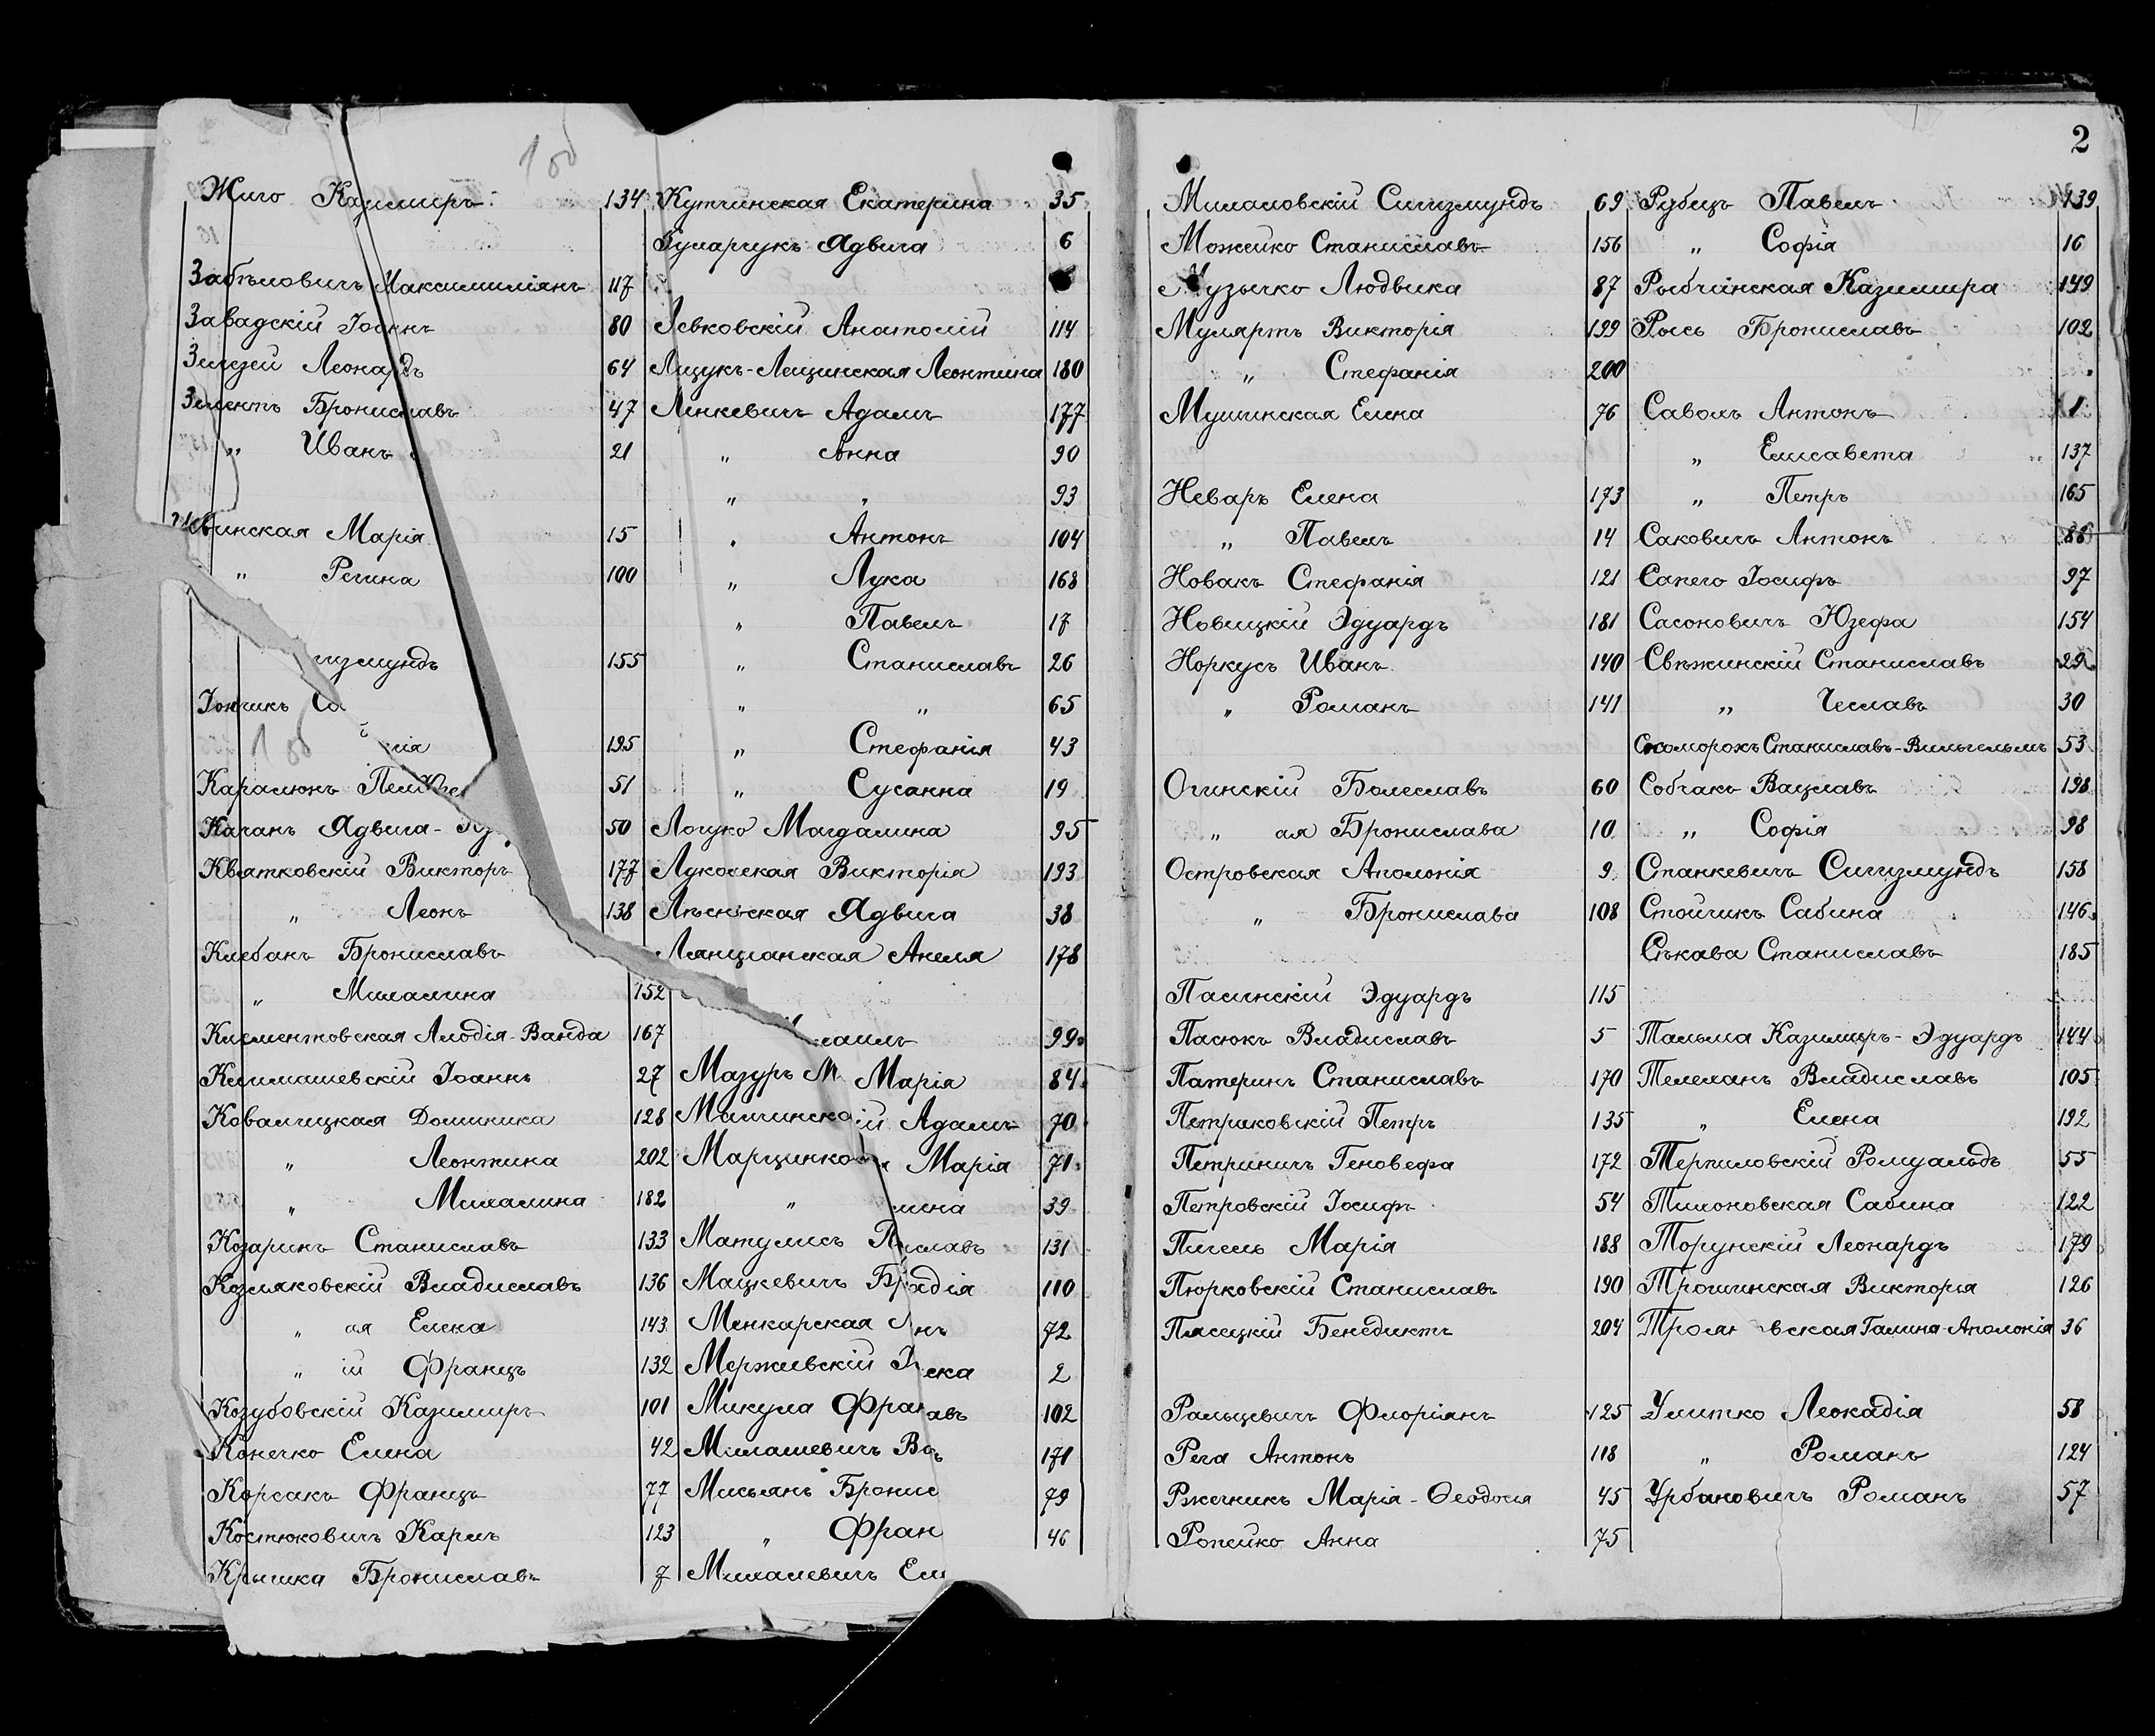 2
Жиго Казимиръ 134
Забѣловичъ Максимиліянъ 117
Завадскій Іоаннъ 80
Зелезей Леонардъ 64
Зелентъ Брониславъ 47
„ Иванъ 21
винская Марія 15
„ Регина 100
гизмундъ 155
Іончикъ
рія 195
51
Качанъ Ядвига- 50
Квятковскій Викторъ 177
„ Леонъ 138
Клебанъ Брониславъ
„ Михалина 152
Клементовская Алодія-Ванда 167
Климашевскій Іоаннъ 27
Ковалицкая Доминика 128
„ Леонтина 202
„ Михалина 182
Козаринъ Станиславъ 133
Козляковскій Владиславъ 136
„ ая Елена 143
„ ій Францъ 132
Козубовскій Казимиръ 101
Конечко Елена 42
Корсакъ Францъ 77
Костюковичъ Карлъ 123
Крышка Брониславъ 7
Кутчинская Екатерина 35
Ядвига 6
Левковскій Анатолій 114
Лещукъ-Лещинская Леонтина 180
Линкевичъ Адамъ 177
„ Анна 90
„ „ 93
„ Антонъ 104
„ Лука 168
„ Павелъ 17
„ Станиславъ 26
„ „ 65
„ Стефанія 43
„ Сусанна 19
Логуко Магдалина 95
Виктория 193
Ядвига 38
Анеля 178
хаилъ 99
Мазуръ М Марія 84
ій Адамъ 70
Марцинко Марія 71
„ лина 39
Матулисъ славъ 131
Мацкевичъ Бр дія 110
Менкарская нъ 72
Мержевскій ека 2
Микула Фран авъ 102
Милашевичъ В 171
Мисьянъ Бронис 79
„ Фран 46
Михалевичъ Ел
Милаловскій Сигизмундъ 69
Можейко Станиславъ 156
Музычко Людвика 87
Муляртъ Викторія 199
„ Стефанія 200
Мушинская Елена 76
Неваръ Елена 173
„ Павелъ 14
Новакъ Стефанія 121
Новицкій Эдуардъ 181
Норкусъ Иванъ 140
„ Романъ 141
Огинскій Болеславъ 60
„ ая Бронислава 10
Островская Аполонія 9
„ Бронислава 108
Пасинскій Эдуардъ 115
Пасюкъ Владиславъ 5
Патеринъ Станиславъ 170
Петраковскій Петръ 135
Петриничъ Геновефа 172
Петровскій Іосифъ 54
Пигель Марія 188
Пюрковскій Станиславъ 190
Плясецкій Бенедиктъ 204
Ральцевичъ Флоріянъ 125
Рега Антонъ 118
Ржечникъ Марія-Ѳеодосія 45
Ропейко Анна 75
Рубецъ Павелъ 139
„ Софія 16
Рыбчинская Казимира 149
Рысь Брониславъ 102
Саволъ Антонъ 1
„ Елисавета 137
„ Петръ 165
Саковичъ Антонъ 86
Сапего Іосифъ 97
Сасоновичъ Юзефа 154
Свѣжинскій Станиславъ 29
„ Чеславъ 30
Скоморохъ Станиславъ-Вильгельмъ 53
Собчакъ Вацлавъ 198
„ Софія 98
Станкевичъ Сигизмундъ 158
Стойчикъ Сабина 146
Сѣкава Станиславъ 185
Тальма Казимиръ-Эдуардъ 144
Телеханъ Владиславъ 105
„ Елена 192
Терпиловскій Ромуальдъ 55
Тихоновская Сабина 122
Торунскій Леонардъ 179
Трошинская Викторія 126
Троян вская Галина-Аполонія 36
Улитко Леокадія 58
„ Романъ 124
Урбановичъ Романъ 57